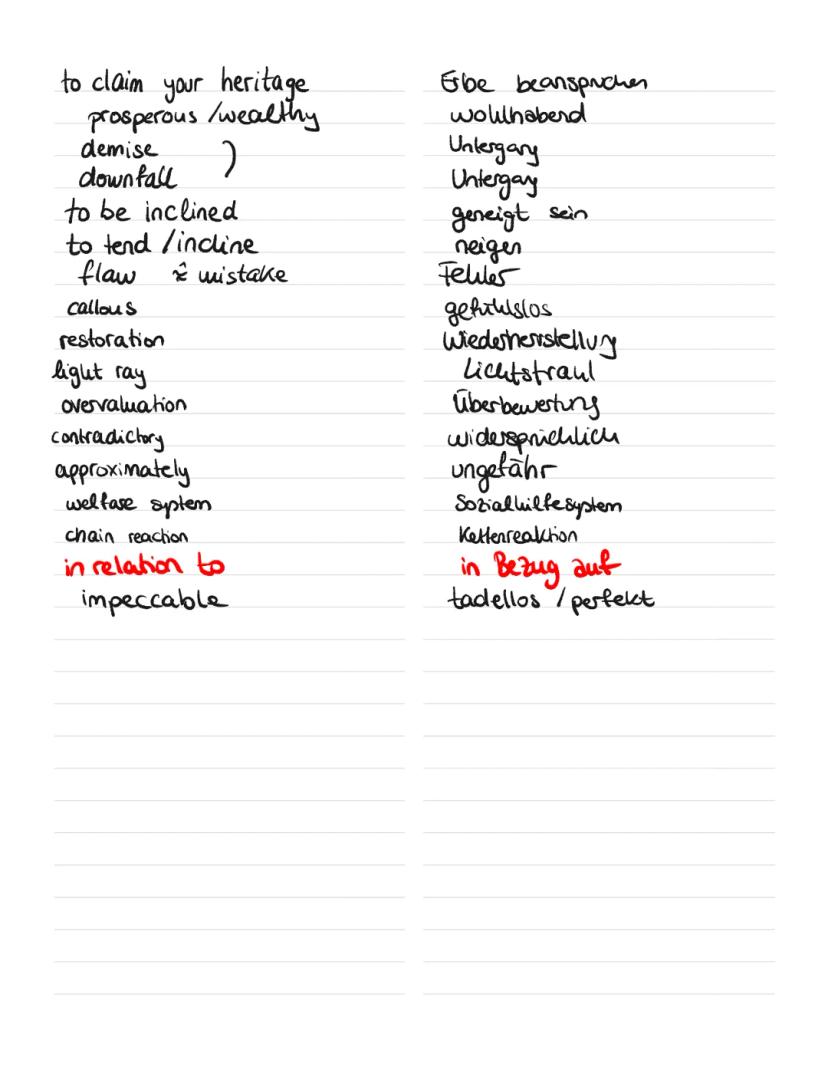 to claim your heritage Erbe beanspruchen
prosperous /wealthy wohlhabend
demise Untergang
downfall Untergang
to be inclined geneigt sein
to tend /incline neigen
flaw ≙ mistake Fehler
callous gefühlslos
restoration Wiederherstellung
light ray Lichtstrahl
overvaluation Überbewertung
contradictory widersprüchlich
approximately ungefähr
welfare system Sozialhilfesystem
chain reaction Kettenreaktion
in relation to in Bezug auf
impeccable tadellos /perfekt